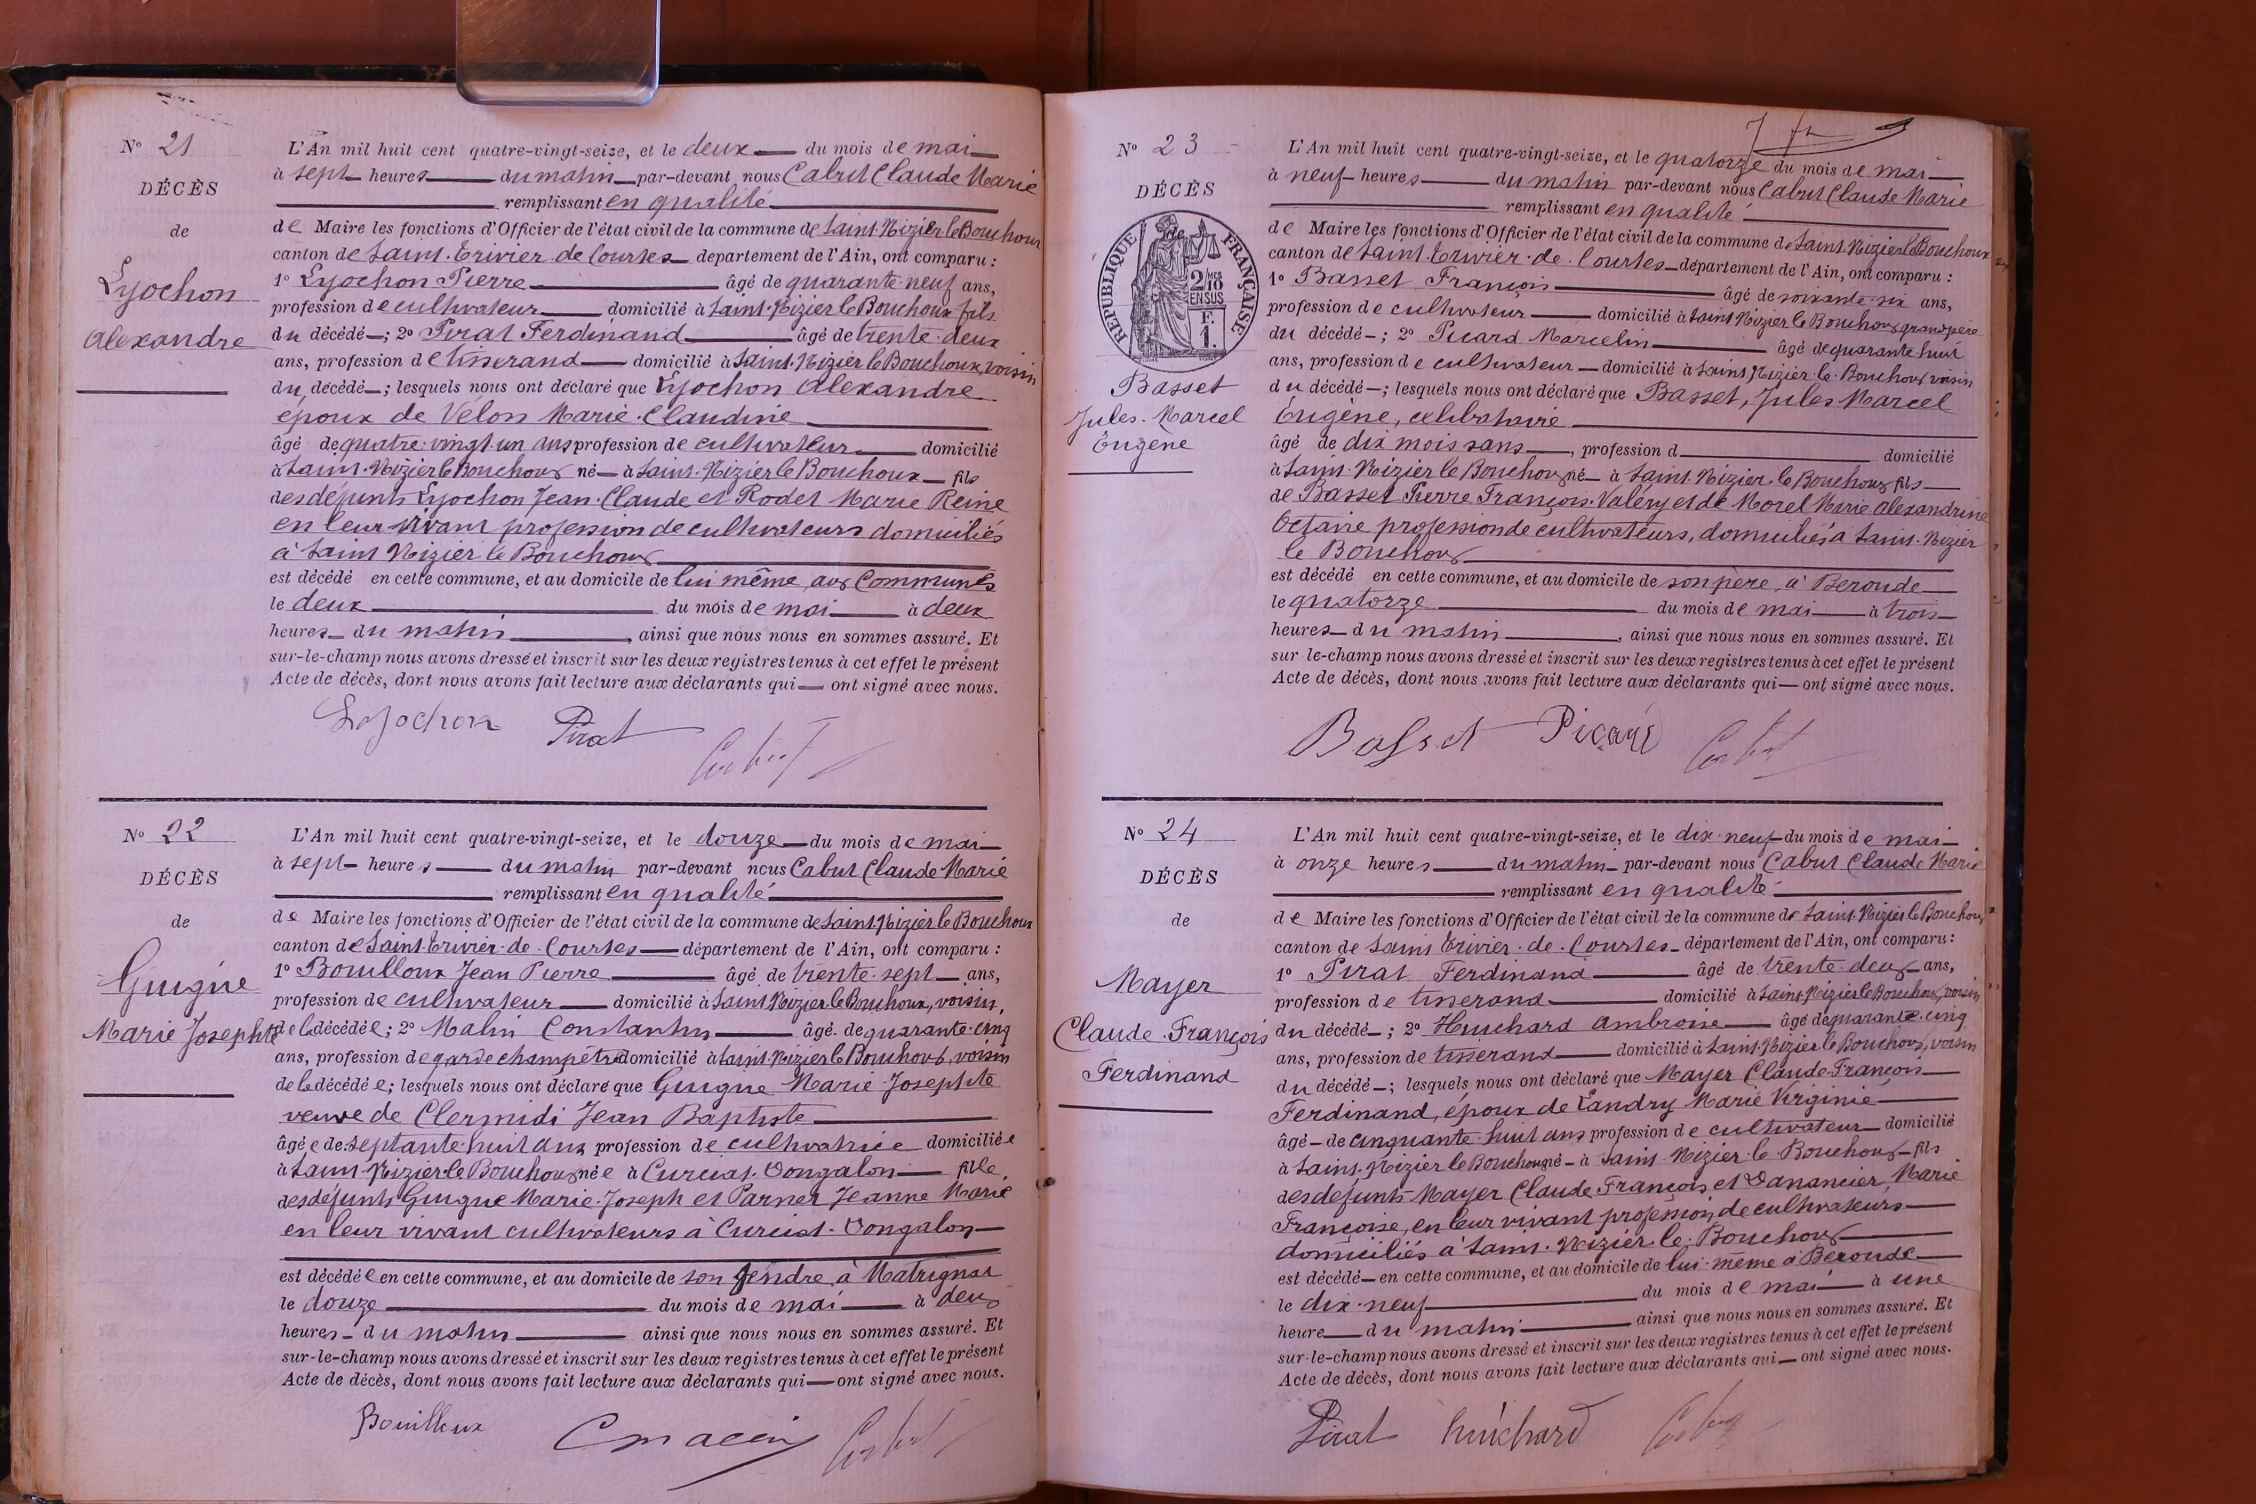 N° 21
DÉCÈS
de
Lyochon
Alexandre
L'An mil huit cent quatre-vingt-seize, et le deux du mois de mai
à sept heures du matin par-devant nous Cabut Claude Marie
remplissant en qualité
de Maire les fonctions d'Officier de l'état civil de la commune de Saint-Nizier le Bouchoux
canton de Saint-Trivier-de-Courtes département de l'Ain, ont comparu :
1° Lyochon Pierre âgé de quarante-neuf ans,
profession de cultivateur domicilié à Saint-Nizier le Bouchoux fils
du décédé ; 2° Pirat Ferdinand âgé de trente-deux
ans, profession de tisserand domicilié à Saint-Nizier le Bouchoux, voisin
du décédé ; lesquels nous ont déclaré que Lyochon Alexandre
époux de Velon Marie-Claudine
âgé de quatre-vingt-un ans profession de cultivateur domicilié
à Saint-Nizier le Bouchoux né à Saint-Nizier le Bouchoux fils
des défunts Lyochon Jean-Claude et Rodet Marie Reine
en leur vivant profession de cultivateurs domiciliés
à Saint Nizier le Bouchoux
est décédé en cette commune, et au domicile de lui même, aux Communes
le deux du mois de mai à deux
heures du matin, ainsi que nous nous en sommes assuré. Et
sur-le-champ nous avons dressé et inscrit sur les deux registres tenus à cet effet le présent
Acte de décès, dont nous avons fait lecture aux déclarants qui ont signé avec nous.
Lyochon Pirat Cabut
N° 22
DÉCÈS
de
Guigue
Marie Josephte
L'An mil huit cent quatre-vingt-seize, et le douze du mois de mai
à sept heures du matin par-devant nous Cabut Claude Marie
remplissant en qualité
de Maire les fonctions d'Officier de l'état civil de la commune de Saint-Nizier le Bouchoux
canton de Saint-Trivier-de-Courtes département de l'Ain, ont comparu :
1° Bouilloux Jean Pierre âgé de trente-sept ans,
profession de cultivateur domicilié à Saint Nizier le Bouchoux, voisin,
de la décédée ; 2° Malin Constantin âgé de quarante-cinq
ans, profession de garde champêtre domicilié à Saint-Nizier le Bouchoux, voisin
de la décédée ; lesquels nous ont déclaré que Guigue Marie Josephte
veuve de Clermidi Jean Baptiste
âgée de septante-huit ans profession de cultivatrice domiciliée
à Saint-Nizier-le Bouchoux née à Curciat-Dongalon fille
des défunts Guigue Marie-Joseph et Parner Jeanne Marie
en leur vivant cultivateurs à Curciat-Dongalon
est décédée en cette commune, et au domicile de son gendre, à Matrignat
le douze du mois de mai à deux
heures du matin ainsi que nous nous en sommes assuré. Et
sur-le-champ nous avons dressé et inscrit sur les deux registres tenus à cet effet le présent
Acte de décès, dont nous avons fait lecture aux déclarants qui ont signé avec nous.
Bouilloux Cabut
N° 23
DÉCÈS
de
RÉPUBLIQUE FRANÇAISE
2/10 EN SUS
F. 1.
Basset
Jules-Marcel
Eugène
L'An mil huit cent quatre-vingt-seize, et le quatorze du mois de mai
à neuf heures du matin par-devant nous Cabut Claude Marie
remplissant en qualité
de Maire les fonctions d'Officier de l'état civil de la commune de Saint-Nizier le Bouchoux
canton de Saint-Trivier-de-Courtes département de l'Ain, ont comparu :
1° Basset François âgé de soixante-six ans,
profession de cultivateur domicilié à Saint Nizier le Bouchoux, grand père
du décédé ; 2° Picard Marcelin âgé de quarante huit
ans, profession de cultivateur domicilié à Saint Nizier-le-Bouchoux voisin
du décédé ; lesquels nous ont déclaré que Basset, Jules Marcel
Eugène, célibataire
âgé de dix mois sans, profession d domicilié
à Saint-Nizier le Bouchoux né à Saint-Nizier-le Bouchoux fils
de Basset Pierre François-Valéry et de Morel Marie Alexandrine
Octavie profession de cultivateurs, domiciliés à Saint-Nizier
le Bouchoux
est décédé en cette commune, et au domicile de son père, à Beroude
le quatorze du mois de mai à trois
heures du matin, ainsi que nous nous en sommes assuré. Et
sur le-champ nous avons dressé et inscrit sur les deux registres tenus à cet effet le présent
Acte de décès, dont nous avons fait lecture aux déclarants qui ont signé avec nous.
Basset Picard Cabut
N° 24
DÉCÈS
de
Mayer
Claude-François
Ferdinand
L'An mil huit cent quatre-vingt-seize, et le dix-neuf du mois de mai
à onze heures du matin par-devant nous Cabut Claude Marie
remplissant en qualité
de Maire les fonctions d'Officier de l'état civil de la commune de Saint-Nizier le Bouchoux
canton de Saint Trivier-de-Courtes département de l'Ain, ont comparu :
1° Pirat Ferdinand âgé de trente-deux ans,
profession de tisserand domicilié à Saint-Nizier le Bouchoux, voisin
du décédé ; 2° Huchard Ambroise âgé de quarante-cinq
ans, profession de tisserand domicilié à Saint-Nizier le Bouchoux, voisin
du décédé ; lesquels nous ont déclaré que Mayer Claude-François
Ferdinand, époux de Landry Marie Virginie
âgé de cinquante-huit ans profession de cultivateur domicilié
à Saint-Nizier le Bouchoux né à Saint-Nizier-le Bouchoux fils
des défunts Mayer Claude-François et Danancier Marie
Françoise, en leur vivant profession de cultivateurs
domiciliés à Saint-Nizier-le-Bouchoux
est décédé en cette commune, et au domicile de lui-même à Beroude
le dix-neuf du mois de mai à une
heure du matin ainsi que nous nous en sommes assuré. Et
sur-le-champ nous avons dressé et inscrit sur les deux registres tenus à cet effet le présent
Acte de décès, dont nous avons fait lecture aux déclarants qui ont signé avec nous.
Pirat huichard Cabut